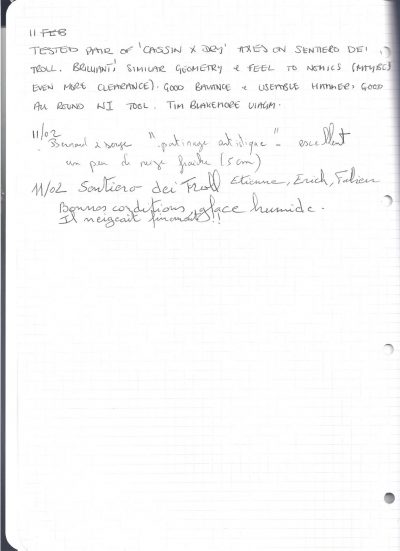 11 FEB
TESTED PAIR OF 'CASSIN X DRY' AXES ON SENTIERO DEI
TROLL. BRILLIANT! SIMILAR GEOMETRY & FEEL TO NOMICS (MAYBE
EVEN MORE CLEARANCE). GOOD BALANCE & USEABLE HAMMER, GOOD
ALL ROUND TOOL. TIM BLAKEMORE
11/02
"patinage artistique" - excellent
un peu de neige fraîche (5 cm)
11/02 Sentiero dei Troll Etienne, Erich, Fabien
Bonnes conditions, glace humide.
Il neigeait finement!!